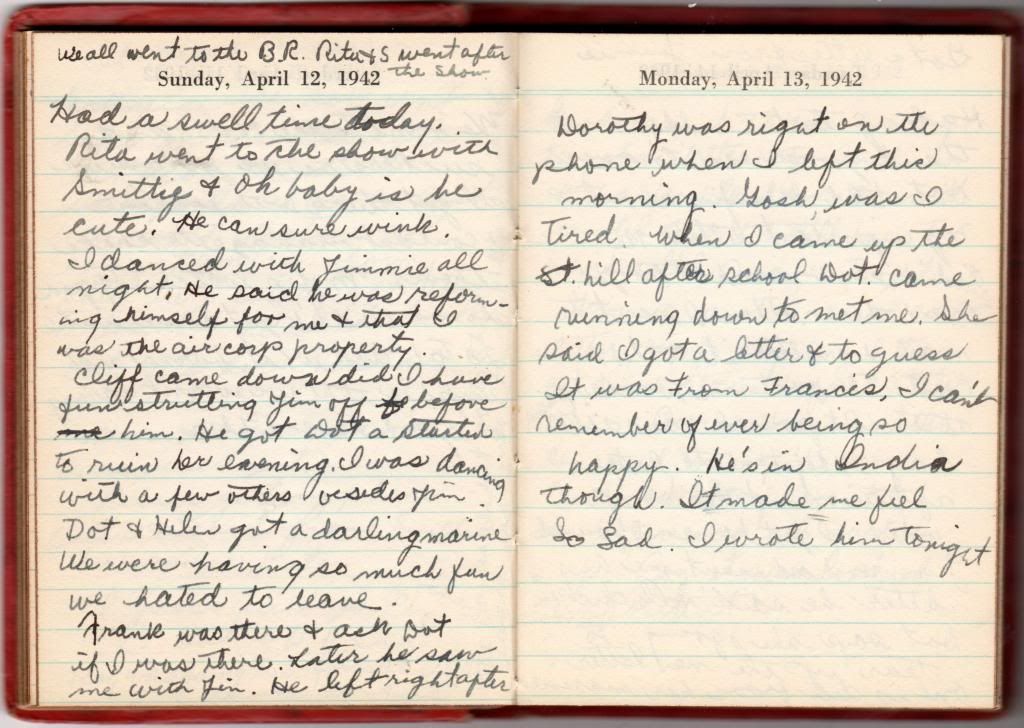 we all went to the B.R. Rita & S went after
the show
Sunday, April 12, 1942
Had a swell time today.
Rita went to the show with
Smittig & Oh baby is he
cute. He can sure wink.
I danced with Jimmie all
night. He said he was reform-
ing himself for me & that I
was the air corp property.
Cliff came down did I have
fun strutting Jim off before
him. He got Dot a started
to ruin her evening. I was dancing
with a few others besides Jim
Dot & Helen got a darling marine
We were having so much fun
we hated to leave.
Frank was there & ask Dot
if I was there. Later he saw
me with Jim. He left right after
Monday, April 13, 1942
Dorothy was right on the
phone when I left this
morning. Gosh, was I
Tired. When I came up the
St. hill after school Dot. came
running down to met me. She
said I got a letter & to guess
It was From Francis, I can't
remember of ever being so
happy. He's in India
though. It made me feel
So Sad. I wrote him tonight